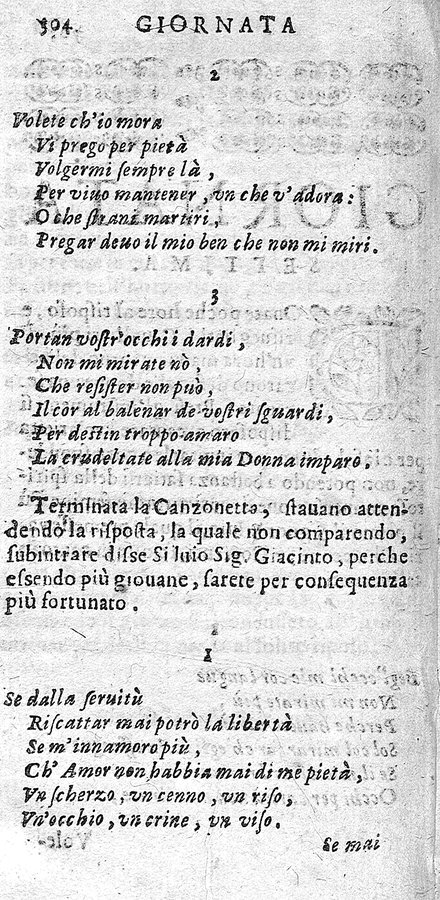 304. GIORNATA
2
Volete ch'io mora
Vi prego per pietà
Volgermi ſempre là,
Per viuo mantener, vn che v'adora:
O che ſtrani martiri,
Pregar deuo il mio ben che non mi miri.
3
Portan voſtr'occhi i dardi,
Non mi mirate nò,
Che reſiſter non può,
Il còr al balenar de voſtri ſguardi,
Per deſtin troppo amaro
La crudeltate alla mia Donna imparo.
Terminata la Canzonetta, ſtauano atten-
dendo la riſposta, la quale non comparendo,
ſubintrare diſſe Siluio Sig. Giacinto, perche
eſſendo più giouane, ſarete per conſequenza
più fortunato.
1
Se dalla ſeruitù
Riſcattar mai potrò la libertà
Se m'innamoro più,
Ch'Amor non habbia mai di me pietà,
Vn ſcherzo, vn cenno, vn riſo,
Vn'occhio, vn crine, vn viſo.
Se mai